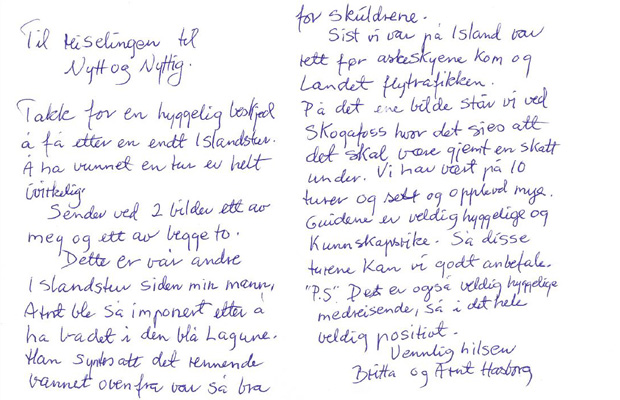 Til reiselingen til
Nytt og Nyttig.
Takk for en hyggelig beskjed
å få etter en endt Islandstur.
Å ha vunnet en tur er helt
uvirkelig.
Sender ved 2 bilder ett av
meg og ett av begge to.
Dette er vår andre
Islandstur siden min mann,
Arnt ble så imponert etter å
ha badet i den blå Lagune.
Han synes att det rennende
vannet ovenfra var så bra
for skuldrene.
Sist vi var på Island var
rett før askeskyene kom og
Landet flytrafikken.
På det ene bilde står vi ved
Skogafoss hvor det sies att
det skal være gjemt en skatt
under. Vi har vært på 10
turer og sett og opplevd mye.
Guidene er veldig hyggelige og
Kunnskapsrike. Så disse
turene kan vi godt anbefale.
"P.S" Det er også veldig hyggelige
medreisende, så i det hele
veldig positivt.
Vennlig hilsen
Britta og Arnt Haaborg